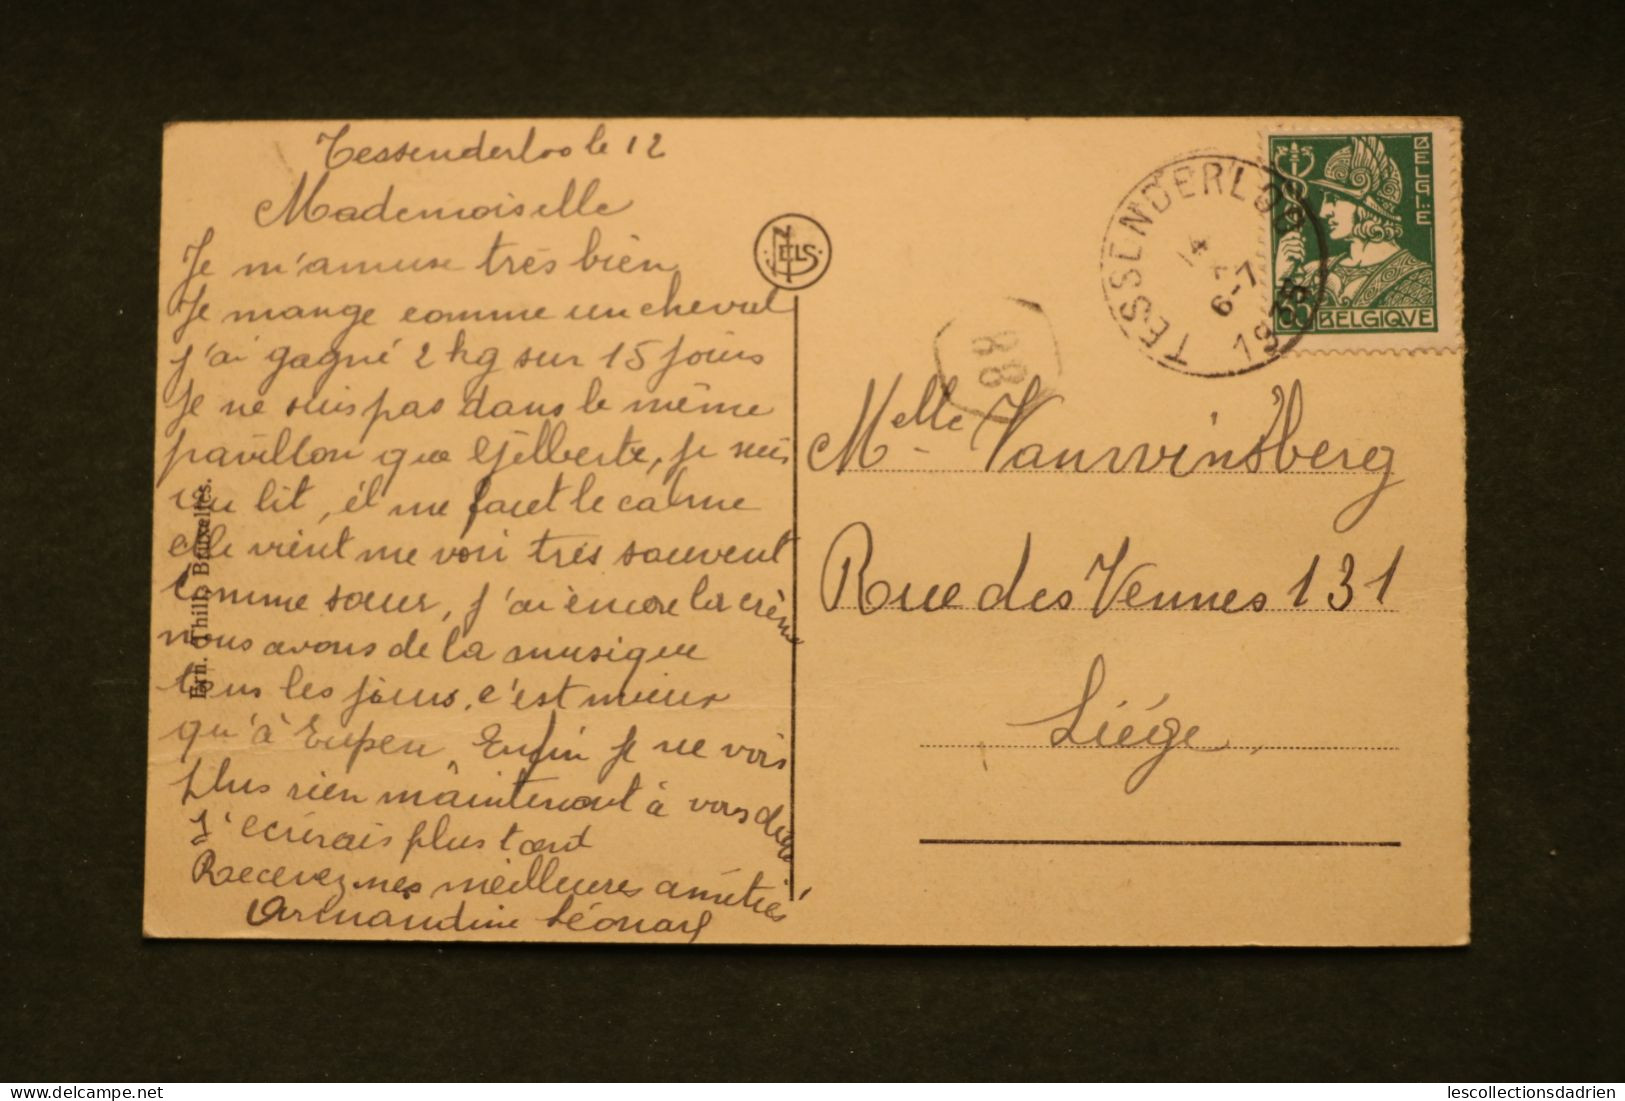 Tessenderloo le 12
Mademoiselle
Je m'amuse très bien
Je mange comme un cheval
j'ai gagné 2 kg sur 15 jours
Je ne suis pas dans le même
pavillon que Gilberte, je suis
au lit, il me faut le calme
elle vient me voir très souvent
comme sœur, j'ai encore la crème
nous avons de la musique
tous les jours, c'est mieux
qu'à Eupen, Enfin je ne vois
plus rien maintenant à vous dire
J'ecrirais plus tard
Recevez mes meilleures amitiés
Armandine Léonard
Ern. Thill, Bruxelles.
NELS
TESSENDERLOO
14
6-7
19
BELGIË
BELGIQVE
Melle Vanwinsberg
Rue des Vennes 131
Liége